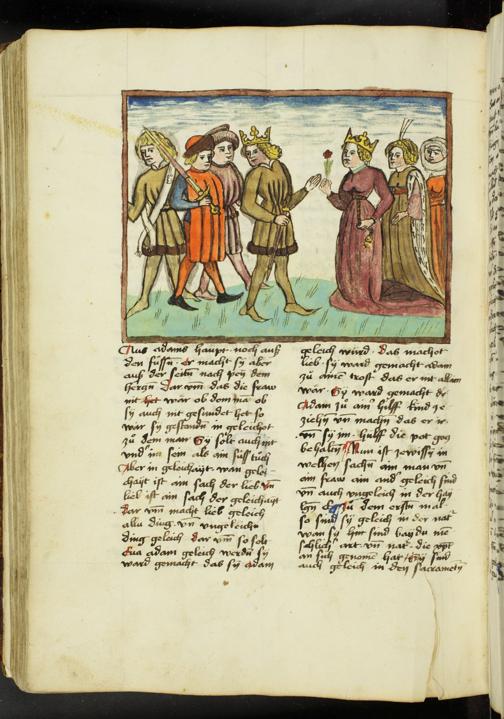 Aus adams haupt noch auß
den fussñ · Er macht sy aber
auß der seitñ nach pey dem
herczñ Dar vm̃ das die fraw
nit het wär ob dem mã ob
sy auch nit gesundert het so
wär sy gestandñ in geleichot
zu dem man Sy solt auch nit
vnd im sein als ain fußtuch
Aber in geleichayt wan gelei
chayt ist ain sach der lieb vñ
lieb ist ain sach der geleichayt
Dar vm̃ macht lieb geleich
alle ding vñ vngeleiche
ding geleich Dar vm̃ so solt
Eua adam geleich werdñ sy
ward gemacht das sy adam
geleich wurd · Das machot
lieb sy ward gemacht adam
zu aime trost das er nit allain
wär · Sy ward gemacht
Adam zu aim hilff kind ze
ziechñ vñ machñ das er
vñ sy im hilff die pot gocz
behaltñ Nun ist ze wissñ in
welhen sachñ ain man vñ
ain fraw ain and geleich sind
vñ auch vngeleich in der hay
Zu dem erstñ mal
so sind sy geleich in der nat
wan sy hat sind bayde me
schlich art vñ nat die xp̃t
an sich genomē hat Sy sind
auch geleich in den sacrametñ